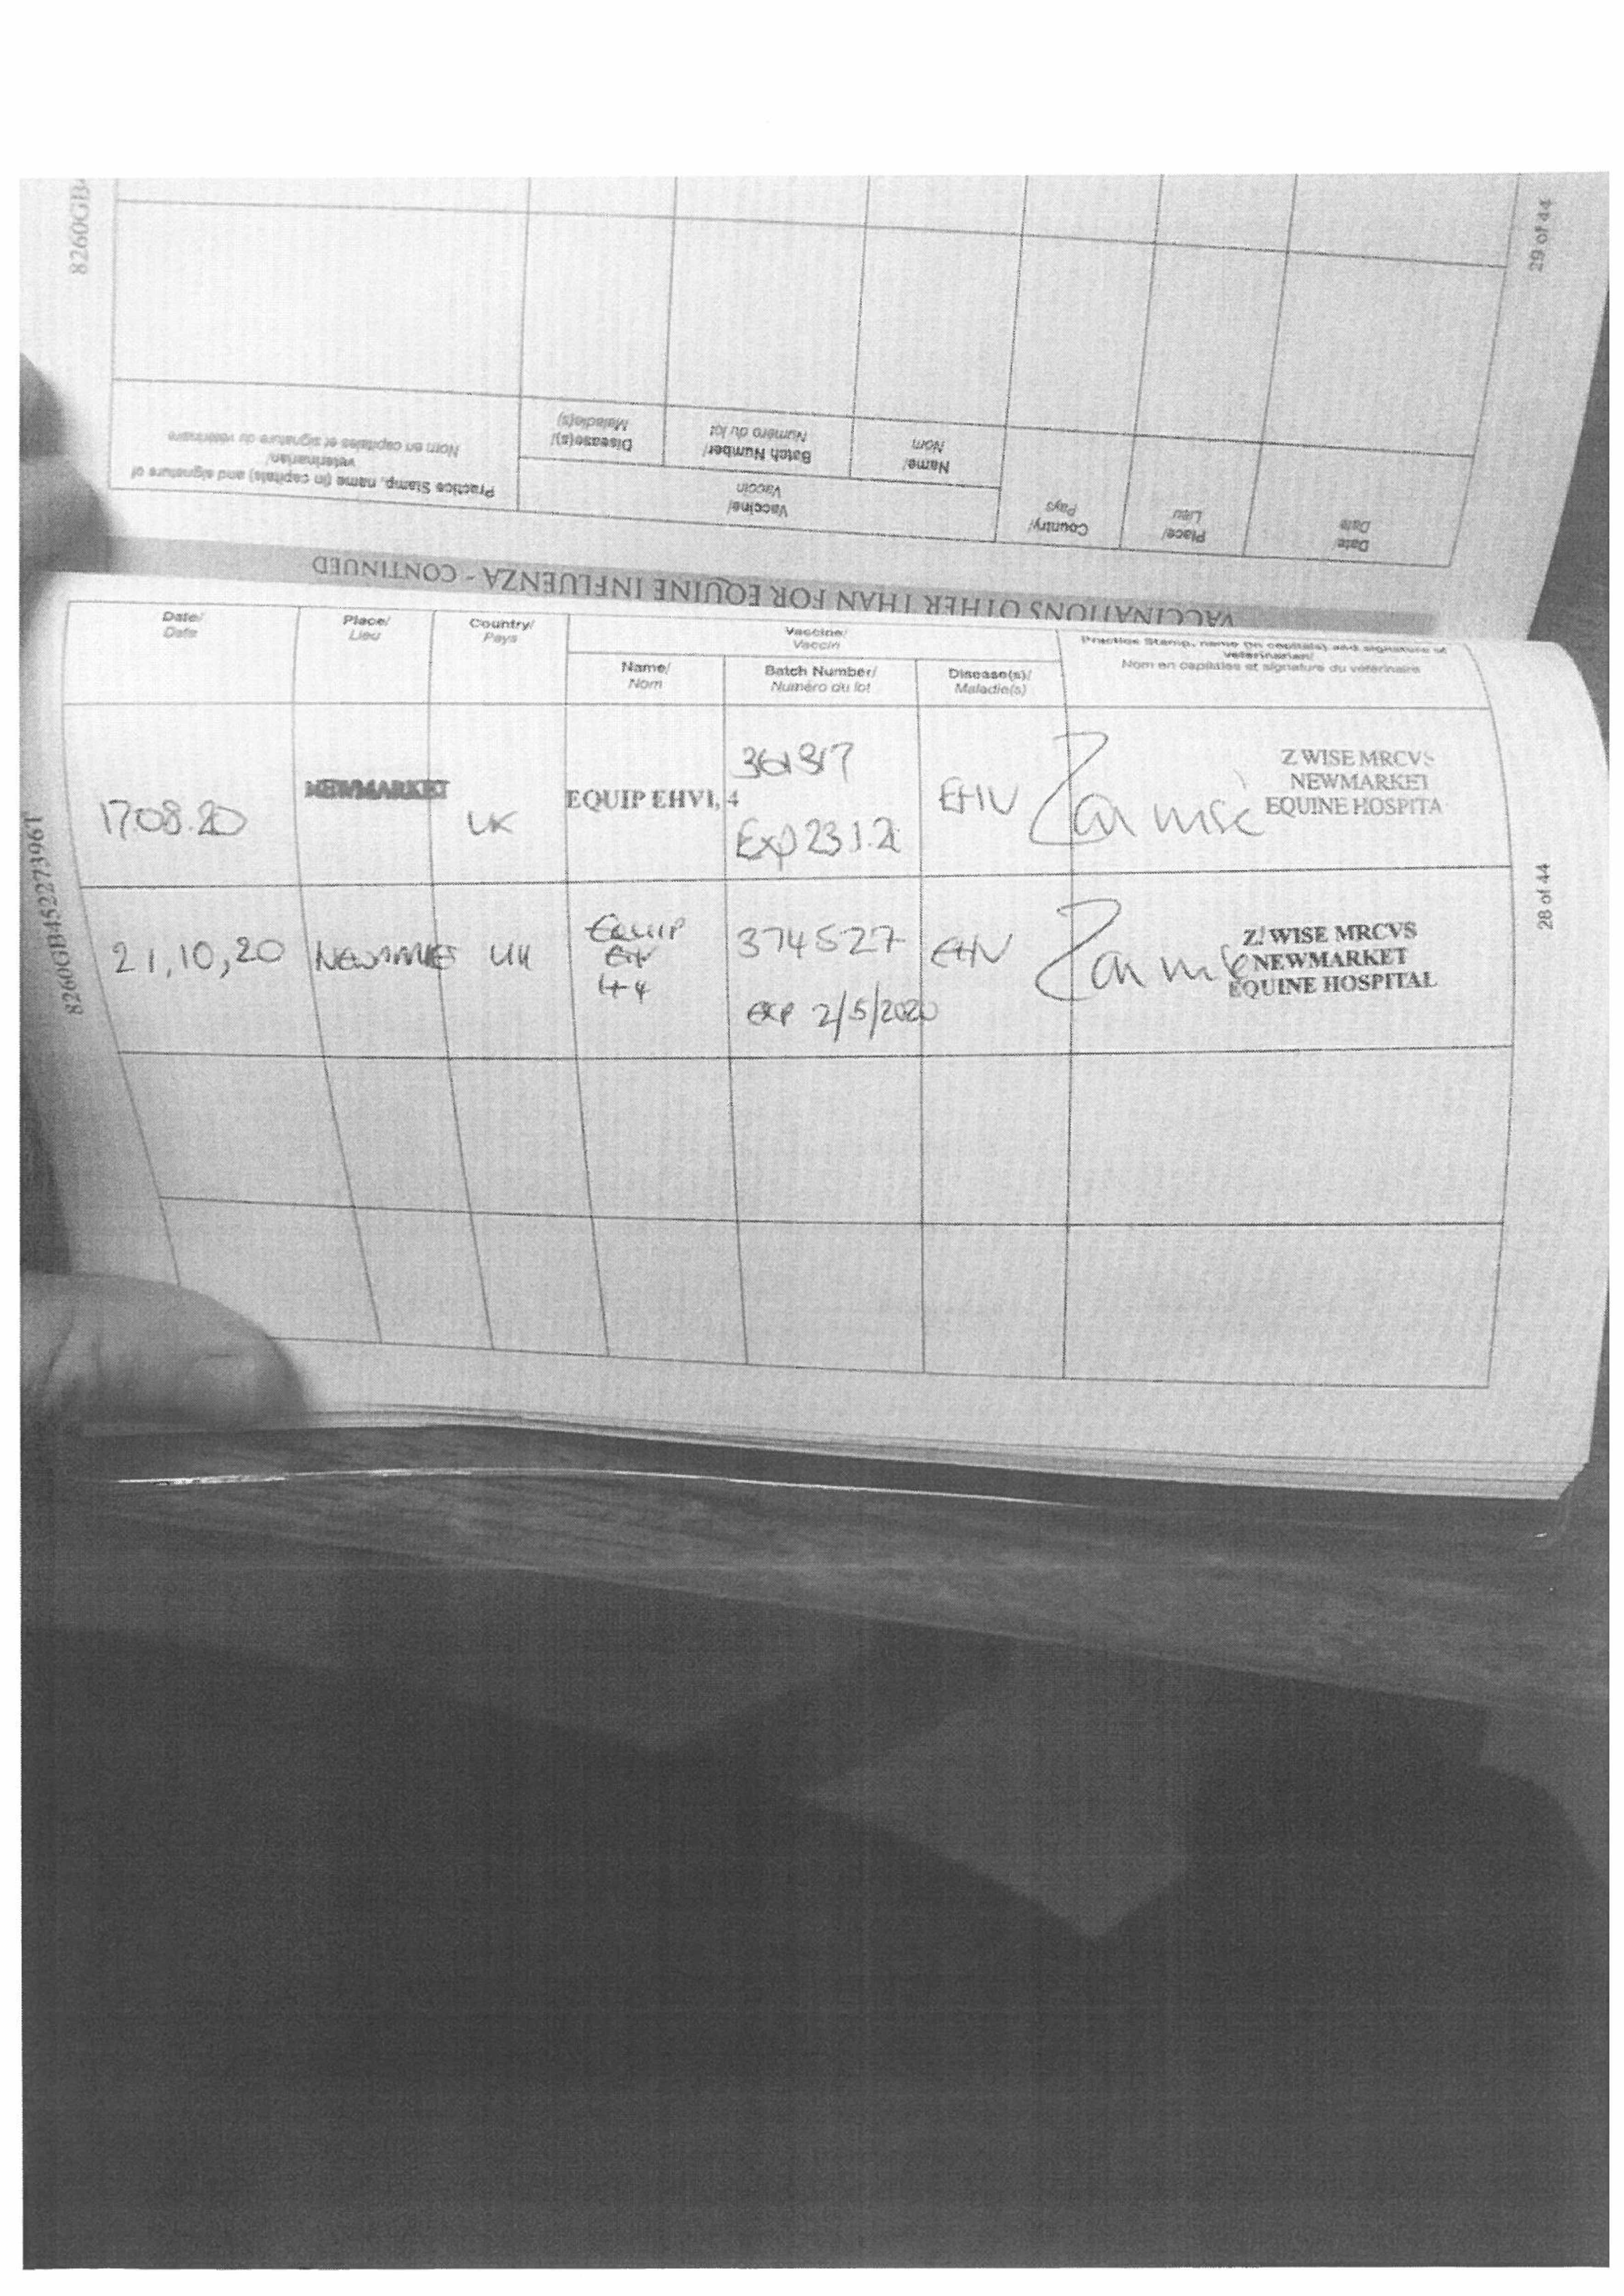 8260GB4
29 of 44
VACCINATIONS OTHER THAN FOR EQUINE INFLUENZA - CONTINUED
Date/
Date
Place/
Lieu
Country/
Pays
Vaccine/
Vaccin
Name/
Nom
Batch Number/
Numéro du lot
Disease(s)/
Maladie(s)
Practice Stamp, name (in capitals) and signature of
veterinarian/
Nom en capitales et signature du vétérinaire
Date/
Date
Place/
Lieu
Country/
Pays
Vaccine/
Vaccin
Practice Stamp, name (in capitals) and signature of
veterinarian/
Nom en capitales et signature du vétérinaire
Name/
Nom
Batch Number/
Numéro du lot
Disease(s)/
Maladie(s)
1708.20
NEWMARKET
UK
EQUIP EHV1, 4
Exp 23.1.21
EHV
Z WISE MRCVS
NEWMARKET
EQUINE HOSPITA
21,10,20
UK
Equip
EHV
1+4
374527
Exp 2/5/2020
EHV
Z! WISE MRCVS
NEWMARKET
EQUINE HOSPITAL
8260GB45227396T
28 of 44